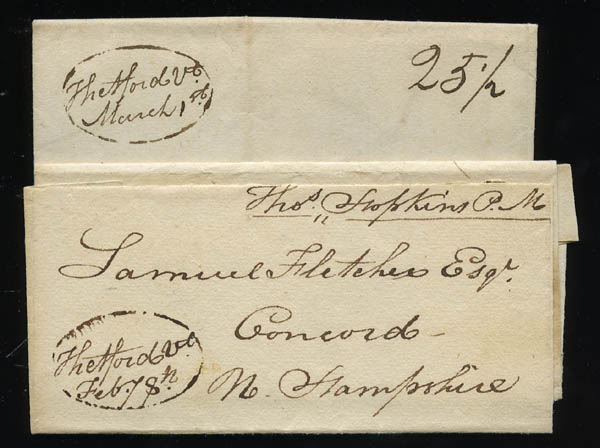 Thetford Vt.
March 1st
25 1/2
Thos. Hopkins P. M
Samuel Fletcher Esqr.
Concord
N. Hampshire
Thetford Vt.
Feby 8th